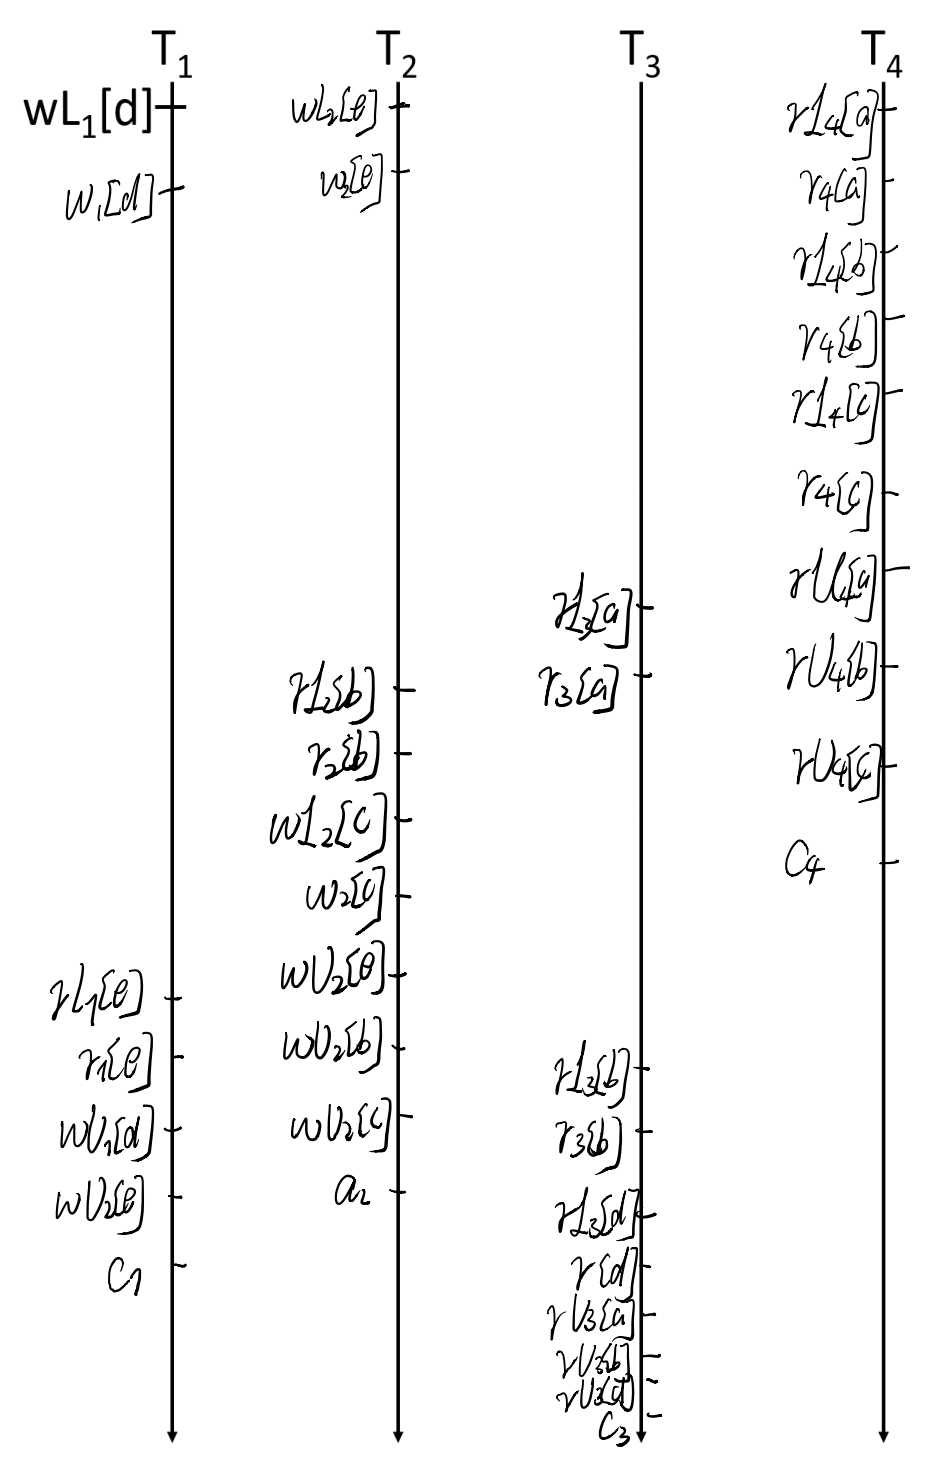 T1
wL1[d]
w1[d]
rL1[e]
r1[e]
wU1[d]
wU2[e]
C1
T2
wL2[e]
w2[e]
rL2[b]
r2[b]
wL2[c]
w2[c]
wU2[e]
wU2[b]
wU2[c]
a2
T3
rL3[a]
r3[a]
rL3[b]
r3[b]
rL3[d]
r[d]
rU3[a]
rU3[b]
rU3[d]
C3
T4
rL4[a]
r4[a]
rL4[b]
r4[b]
rL4[c]
r4[c]
rU4[a]
rU4[b]
rU4[c]
C4